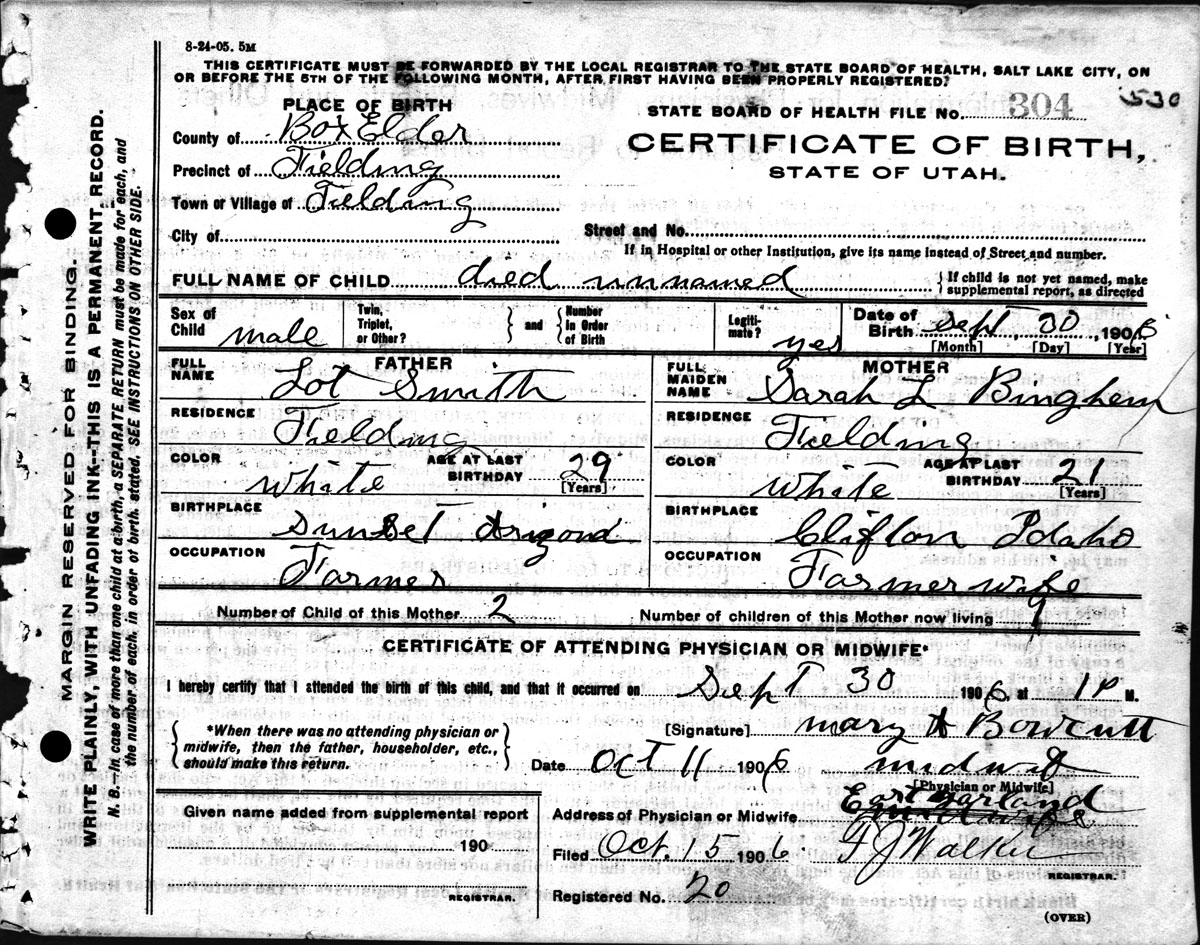 8-24-05. 5M
THIS CERTIFICATE MUST BE FORWARDED BY THE LOCAL REGISTRAR TO THE STATE BOARD OF HEALTH, SALT LAKE CITY, ON
OR BEFORE THE 5TH OF THE FOLLOWING MONTH, AFTER FIRST HAVING BEEN PROPERLY REGISTERED.
530
PLACE OF BIRTH
STATE BOARD OF HEALTH FILE No. 304
County of Box Elder
CERTIFICATE OF BIRTH,
STATE OF UTAH.
Precinct of Fielding
Town or Village of Fielding
City of
Street and No.
If in Hospital or other Institution, give its name instead of Street and number.
FULL NAME OF CHILD died unnamed
If child is not yet named, make
supplemental report, as directed
Sex of Child male
Twin, Triplet, or Other?
and
Number in Order of Birth
Legiti-mate? yes
Date of Birth Sept, 30, 1906
[Month] [Day] [Year]
FATHER
FULL NAME Lot Smith
RESIDENCE Fielding
COLOR White
AGE AT LAST BIRTHDAY 29
[Years]
BIRTHPLACE Sunset Arizona
OCCUPATION Farmer
MOTHER
FULL MAIDEN NAME Sarah L Binghem
RESIDENCE Fielding
COLOR White
AGE AT LAST BIRTHDAY 21
[Years]
BIRTHPLACE Clifton Idaho
OCCUPATION Farmer wife
Number of Child of this Mother 2
Number of children of this Mother now living 1
CERTIFICATE OF ATTENDING PHYSICIAN OR MIDWIFE*
I hereby certify that I attended the birth of this child, and that it occurred on Sept 30 1906 at 1 P M.
*When there was no attending physician or
midwife, then the father, householder, etc.,
should make this return.
[Signature] Mary A Bowcutt
Date Oct 11 1906 midwif
[Physician or Midwife]
Given name added from supplemental report
190
REGISTRAR.
Address of Physician or Midwife East Garland
Filed Oct. 15 1906. F J Walker
REGISTRAR.
Registered No. 20
(OVER)
MARGIN RESERVED FOR BINDING.
WRITE PLAINLY, WITH UNFADING INK--THIS IS A PERMANENT RECORD.
N. B.—In case of more than one child at a birth, a SEPARATE RETURN must be made for each, and
the number of each, in order of birth, stated. SEE INSTRUCTIONS ON OTHER SIDE.